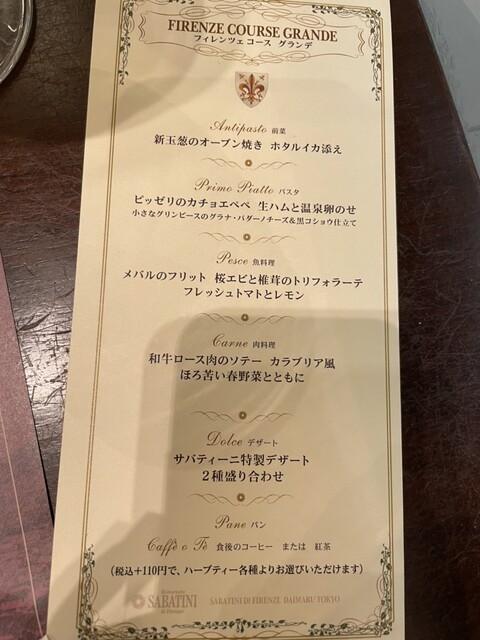 FIRENZE COURSE GRANDE
フィレンツェコース グランデ
Antipasto 前菜
新玉葱のオーブン焼き ホタルイカ添え
Primo Piatto パスタ
ピッゼリのカチョエペペ 生ハムと温泉卵のせ
小さなグリンピースのグラナ・パダーノチーズ&黒コショウ仕立て
Pesce 魚料理
メバルのフリット 桜エビと椎茸のトリフォラーテ
フレッシュトマトとレモン
Carne 肉料理
和牛ロース肉のソテー カラブリア風
ほろ苦い春野菜とともに
Dolce デザート
サバティーニ特製デザート
2種盛り合わせ
Pane パン
Caffè o Tè 食後のコーヒー または 紅茶
(税込+110円で、ハーブティー各種よりお選びいただけます)
Ristorante
SABATINI
di Firenze
SABATINI DI FIRENZE DAIMARU TOKYO